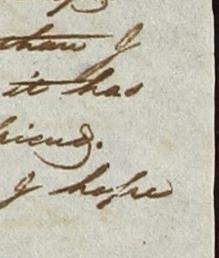 than I
it has
friend.
I hope